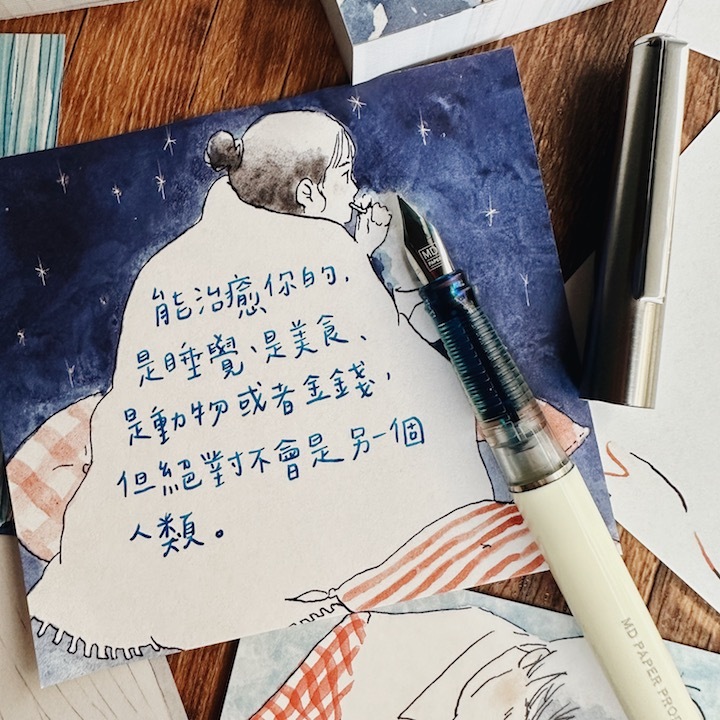 能治癒你的，
是睡覺、是美食、
是動物或者金錢，
但絕對不會是另一個
人類。
MD
PAPER
MD PAPER PRO